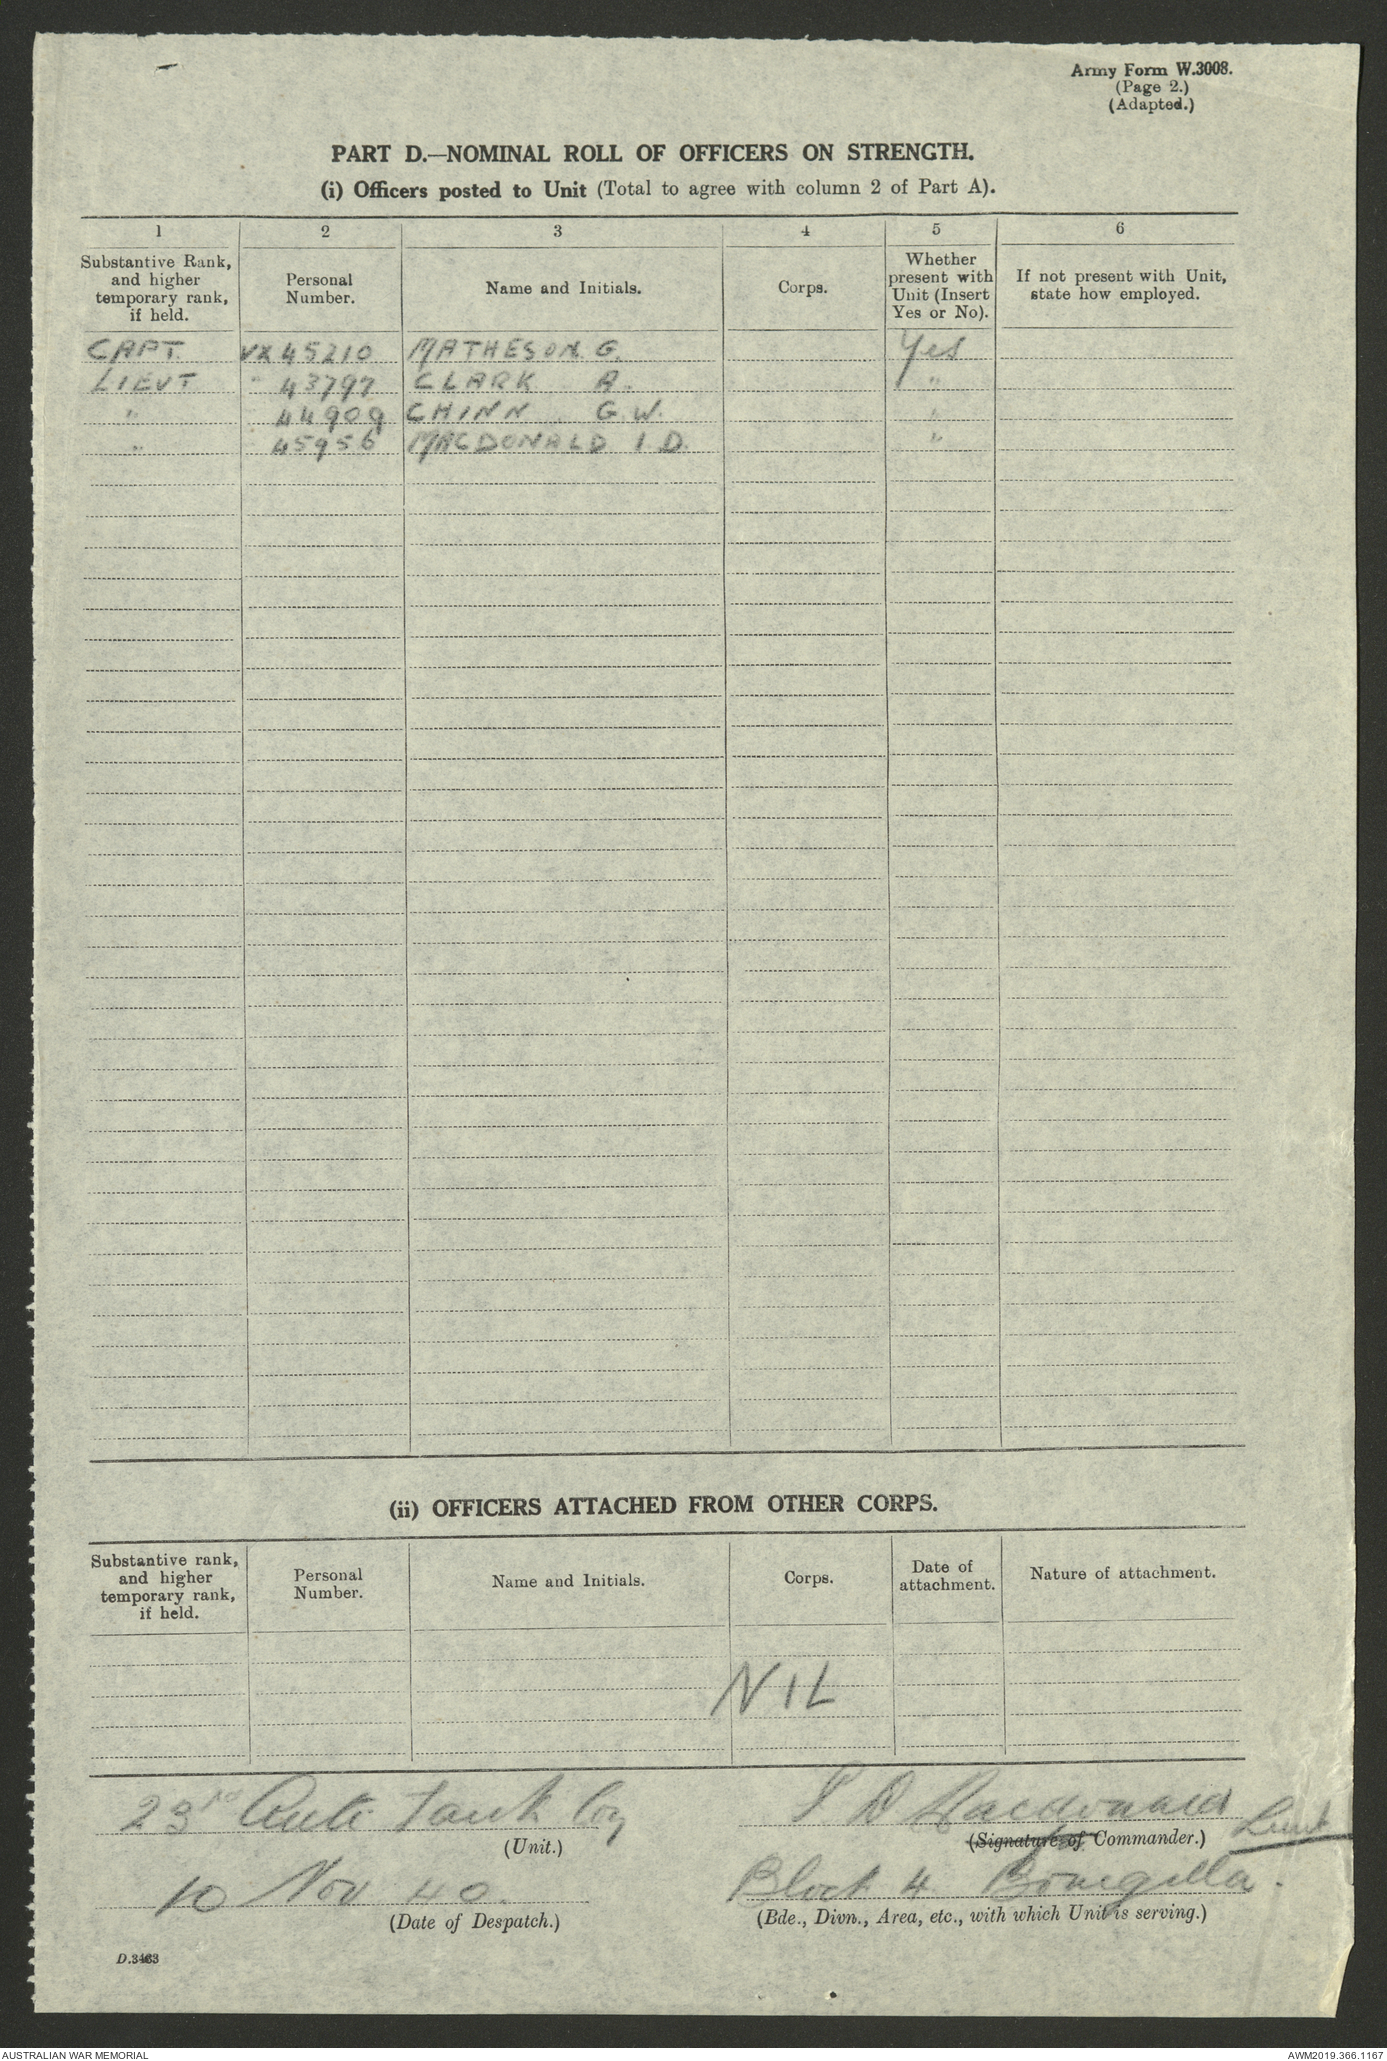 Army Form W.3008.
(Page 2.)
(Adapted.)
PART D.—NOMINAL ROLL OF OFFICERS ON STRENGTH.
(i) Officers posted to Unit (Total to agree with column 2 of Part A).
1 2 3 4 5 6
Substantive Rank, and higher temporary rank, if held. Personal Number. Name and Initials. Corps. Whether present with Unit (Insert Yes or No). If not present with Unit, state how employed.
CAPT VX 45210 MATHESON G. Yes
LIEUT " 43797 CLARK A. "
" " 44909 CHINN G.W. "
" " 45956 MACDONALD I D. "
(ii) OFFICERS ATTACHED FROM OTHER CORPS.
Substantive rank, and higher temporary rank, if held. Personal Number. Name and Initials. Corps. Date of attachment. Nature of attachment.
NIL
23rd Anti Tank Coy I D Macdonald Lieut
(Unit.) (Signature of Commander.)
10 Nov 40. Block 4 Bonegilla.
(Date of Despatch.) (Bde., Divn., Area, etc., with which Unit is serving.)
D.3463
AUSTRALIAN WAR MEMORIAL AWM2019.366.1167